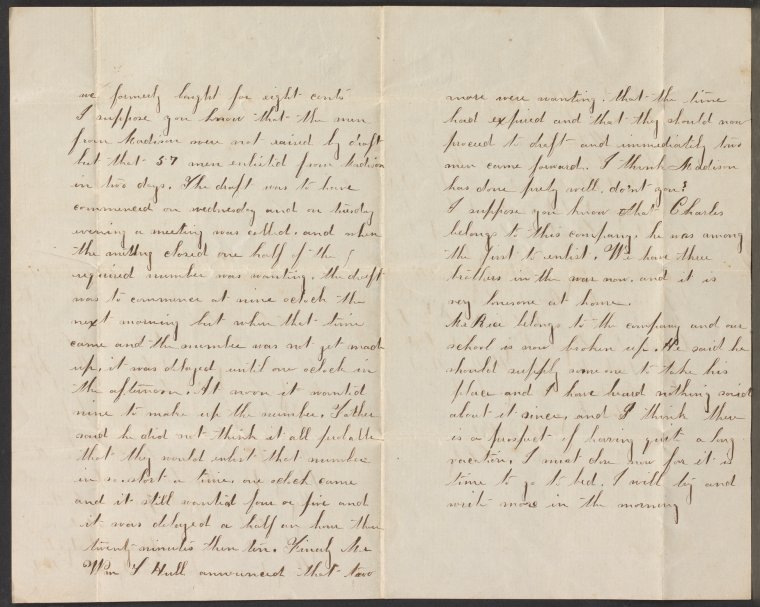 we formerly bought for eight cents
I suppose you know that the men
from Madison were not raised by draft
but that 57 men enlisted from Madison
in two days. The draft was to have
commenced on wednesday and on tuesday
evening a meeting was called, and when
the meeting closed one half of the
required number was wanting. the draft
was to commence at nine oclock the
next morning but when that time
came and the number was not yet made
up, it was delayed until one oclock in
the afternoon. At noon it wanted
nine to make up the number. Father
said he did not think it all probable
that they would enlist that number
in so short a time, one oclock came
and it still wanted four or five and
it was delayed a half an hour then
twenty minutes then ten. Finaly Mr
Wm T Hull announced that two
more were wanting, that the time
had expired and that they should now
proceed to draft and immediately two
men came forward. I think Madison
has done prety well, do'nt you?
I suppose you know that Charles
belongs to this company, he was among
the first to enlist. We have three
brothers in the war now, and it is
very lonesome at home.
Mr Rice belongs to the company and our
school is now broken up. He said he
should supply some one to take his
place and I have heard nothing said
about it since, and I think there
is a prospect of having quite a long
vacation. I must close now for it is
time to go to bed. I will try and
write more in the morning